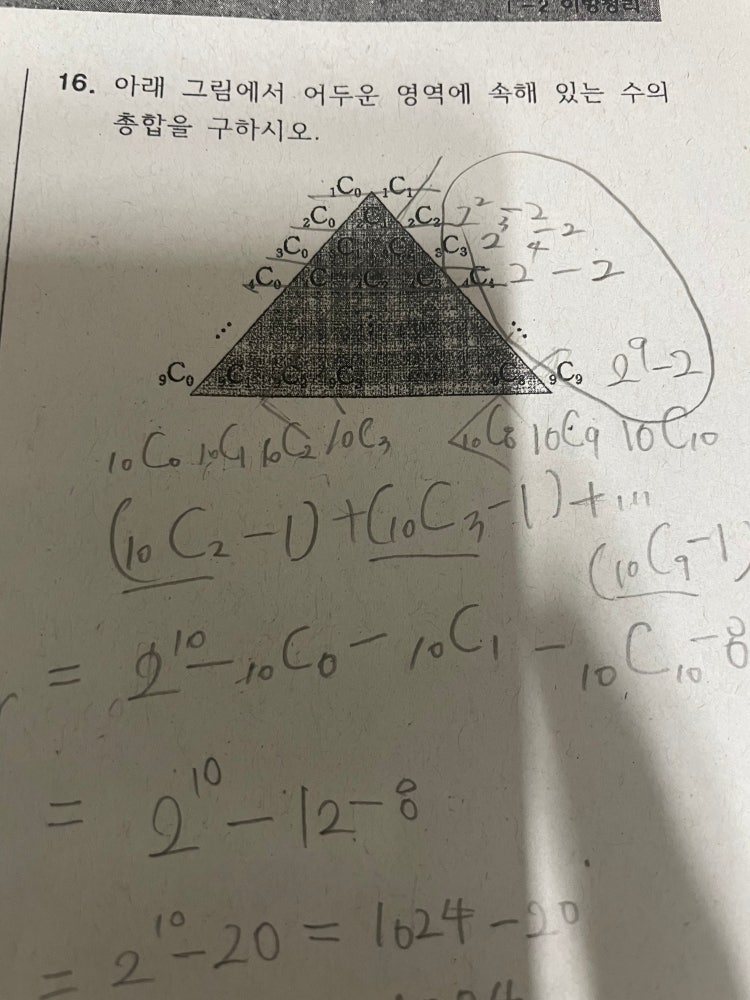 1-2 이항정리
16. 아래 그림에서 어두운 영역에 속해 있는 수의
총합을 구하시오.
₁C₀ ₁C₁
₂C₀ ₂C₁ ₂C₂ 2²-2
₃C₀ ₃C₃ 2³-2
₄C₀ ₄C₄ 2⁴-2
⋰ ⋮ ⋱
₉C₀ ₉C₈ ₉C₉ 2⁹-2
₁₀C₀ ₁₀C₁ ₁₀C₂ ₁₀C₃ ₁₀C₈ ₁₀C₉ ₁₀C₁₀
(₁₀C₂-1)+(₁₀C₃-1)+…
(₁₀C₉-1)
= 2¹⁰-₁₀C₀-₁₀C₁-₁₀C₁₀-8
= 2¹⁰-12-8
= 2¹⁰-20=1024-20